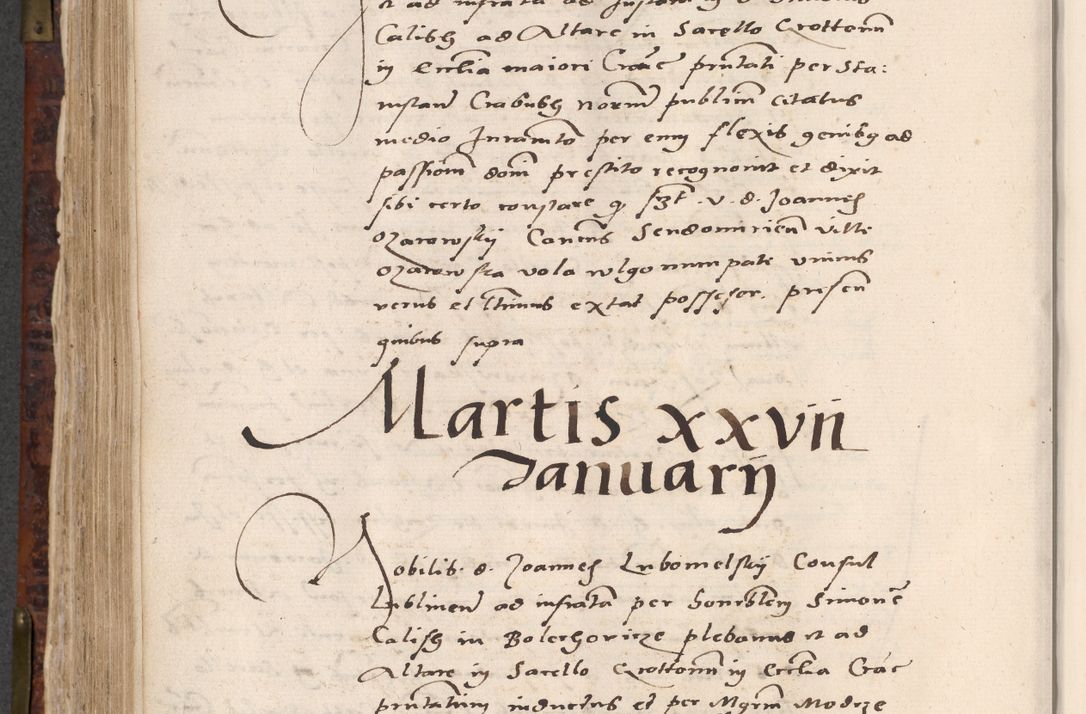 et ad infrata ad Instan in
Calish ad Altare in Sacello Crottonn
in Ecclia maiori Crac prntati per Sta:
nislan Crabush norm publicm citatus
medio Inramto per eum flexis genibq ad
passionn dom prestito recognovit et dixit
sibi certo constare q v. d. Joannes
Ozarowsky Cancus Sendomirien ville
Ozarowska vola wlgo nuncupate unicus
verus et ltimus extat possesor. presen
quibus supra
Martis xxvii
Januarij
Nobilis. d. Joannes Lubomelsky Consul
Lublinen ad infrata per honrblem Simone
Calish in Bolechowicze plebanus et ad
Altare in Sacello Crottonn in Ecclia Crac
prntatum inductus et per Mgrm Modrze